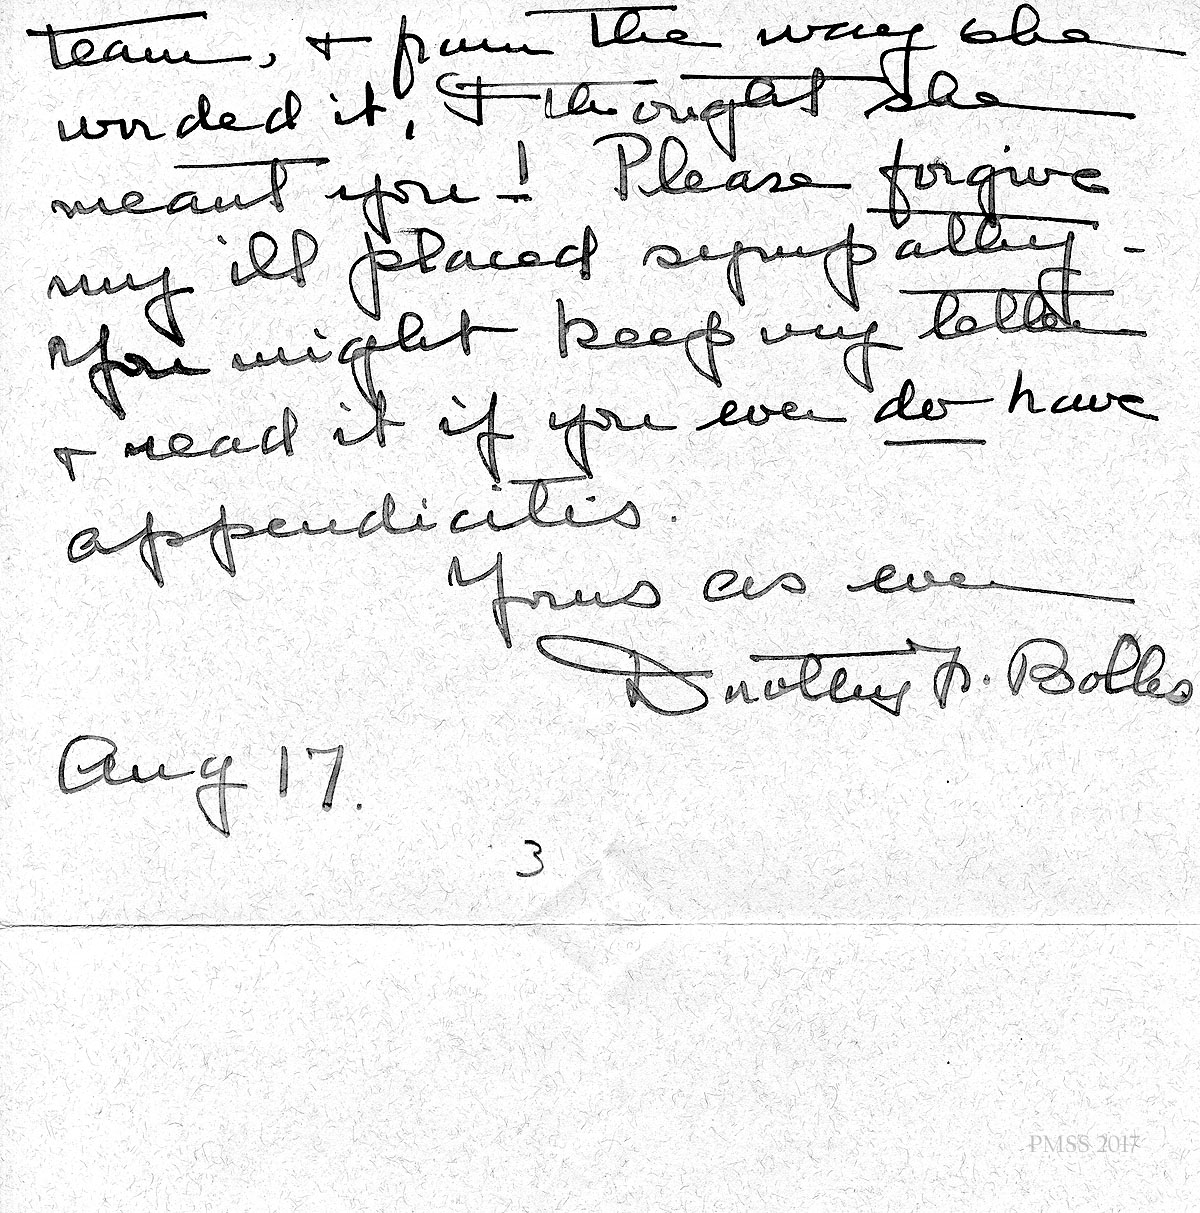 team, + from the way she
worded it, I thought she
meant you! Please forgive
my ill placed sympathy -
You might keep my letter
+ read it if you ever do have
appendicitis.
Yours as ever
Dorothy F. Bolles
Aug 17.
3
PMSS 2017